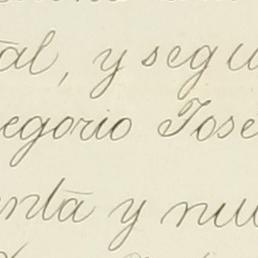 tal, y segu
egorio Jose
enta y nue